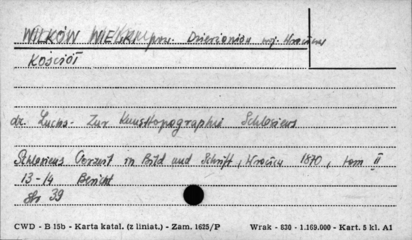 WILKÓW WIELKI pow. Dzierżoniów woj. Wrocław
Kościół
dr. Luchs - Zur Kunsttopographie Schlesiens
Schlesiens Vorzeit in Bild und Schrift, Wrocław 1870, tom II
13-14 Bericht
Str 39
CWD - B 15b - Karta katal. (z liniat.) - Zam. 1625/P Wrak - 830 - 1.169.000 - Kart. 5 kl. A1